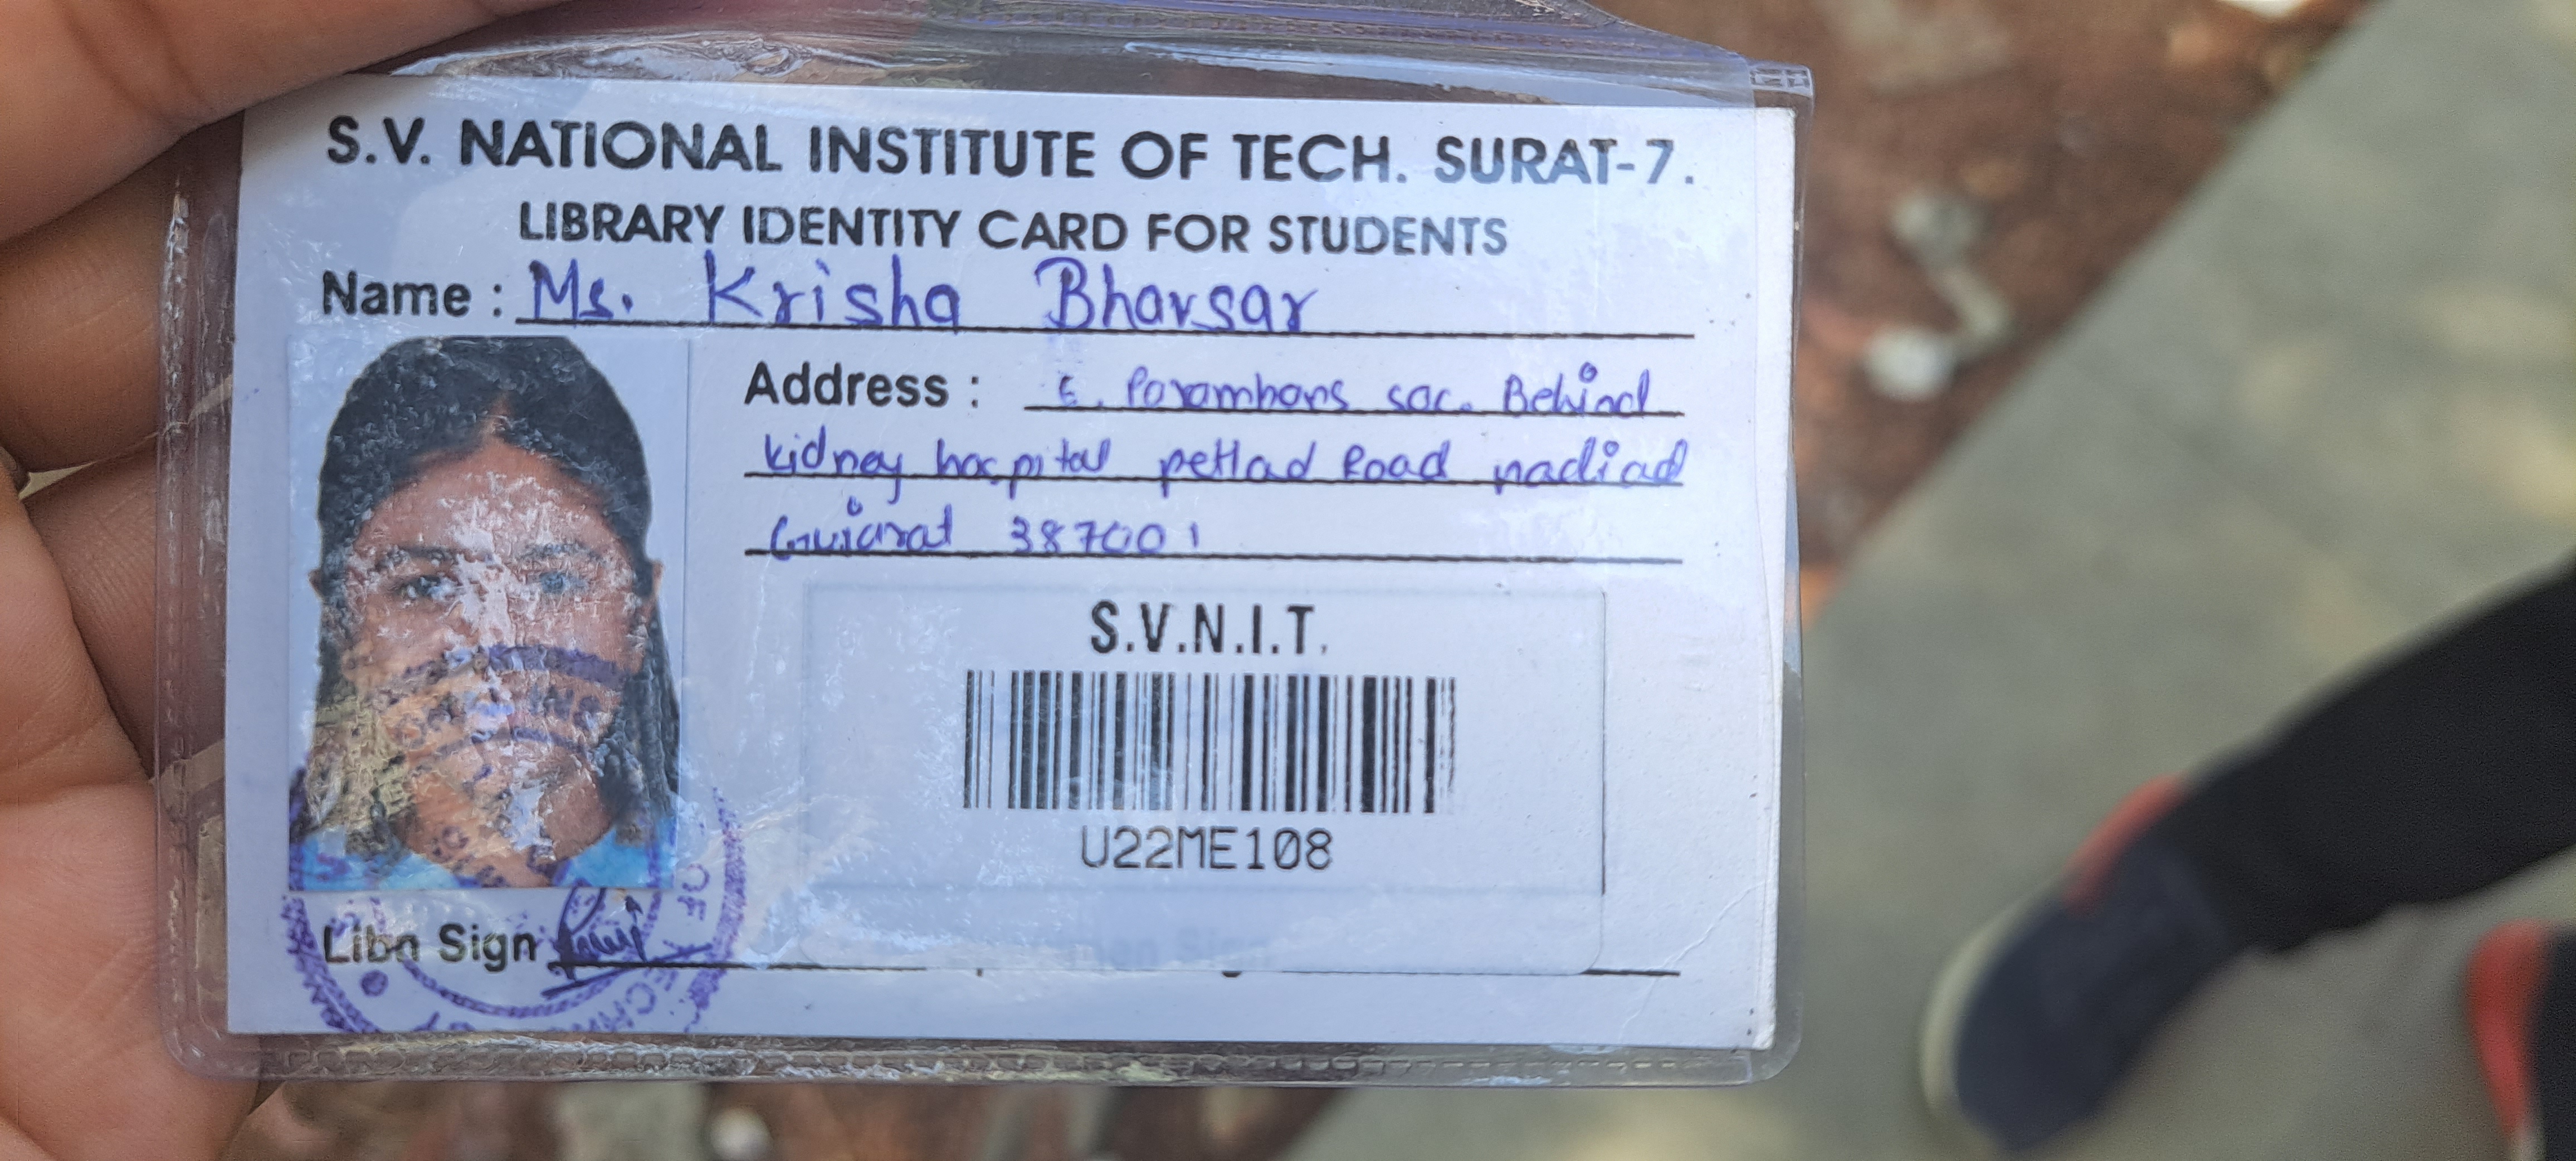 S.V. NATIONAL INSTITUTE OF TECH. SURAT-7.
LIBRARY IDENTITY CARD FOR STUDENTS
Name : Ms. Krisha Bhavsar
Address : 6, Paramhans soc. Behind
kidney hospital petlad Road nadiad
Gujarat 387001
S.V.N.I.T.
U22ME108
Libn Sign
OF